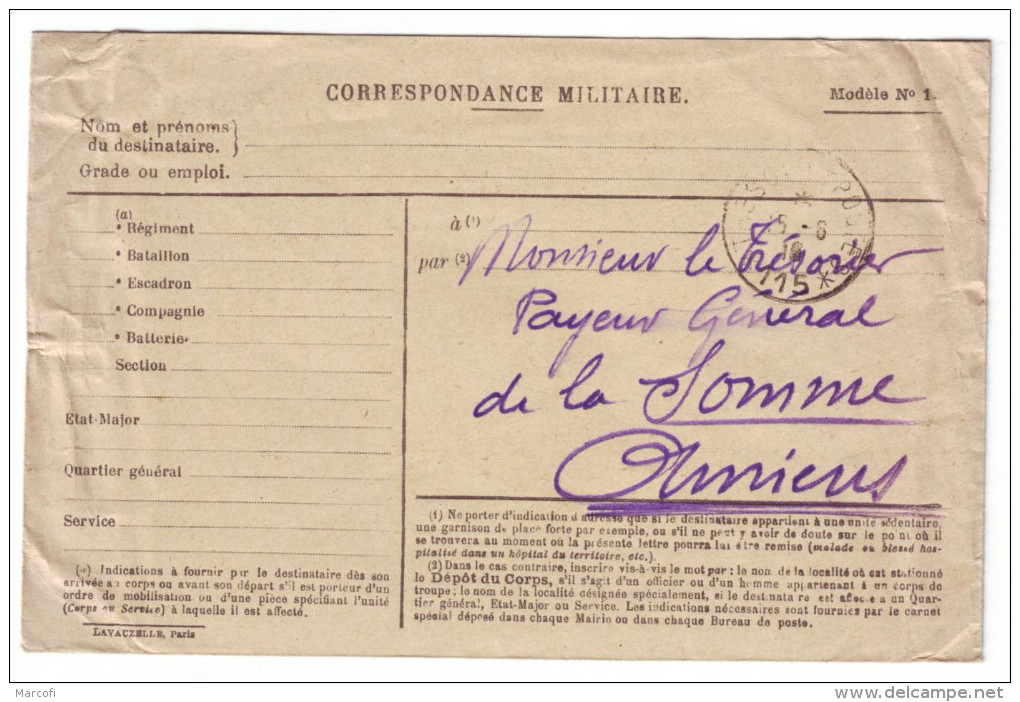 CORRESPONDANCE MILITAIRE.
Modèle No 1.
Nom et prénoms}
du destinataire.
Grade ou emploi.
(a)
• Régiment
• Bataillon
• Escadron
• Compagnie
• Batterie
Section
Etat-Major
Quartier général
Service
(a) Indications à fournir par le destinataire dès son
arrivée au corps ou avant son départ s'il est porteur d'un
ordre de mobilisation ou d'une pièce spécifiant l'unité
(Corps ou Service) à laquelle il est affecté.
LAVAUZELLE, Paris
à (1)
par (2)
Monsieur le Trésorier
Payeur Général
de la Somme
Amiens
POSTES
15 - 6
115 *
(1) Ne porter d'indication d'adresse que si le destinataire appartient à une unité sédentaire,
une garnison de place forte par exemple, ou s'il ne peut y avoir de doute sur le point où il
se trouvera au moment où la présente lettre pourra lui être remise (malade ou blessé hos-
pitalisé dans un hôpital du territoire, etc.)
(2) Dans le cas contraire, inscrire vis-à-vis le mot par : le nom de la localité où est stationné
le Dépôt du Corps, s'il s'agit d'un officier ou d'un homme appartenant à un corps de
troupe; le nom de la localité désignée spécialement, si le destinataire est affecté a un Quar-
tier général, Etat-Major ou Service. Les indications nécessaires sont fournies par le carnet
spécial déposé dans chaque Mairie ou dans chaque Bureau de poste.
Marcofi
delcampe.net